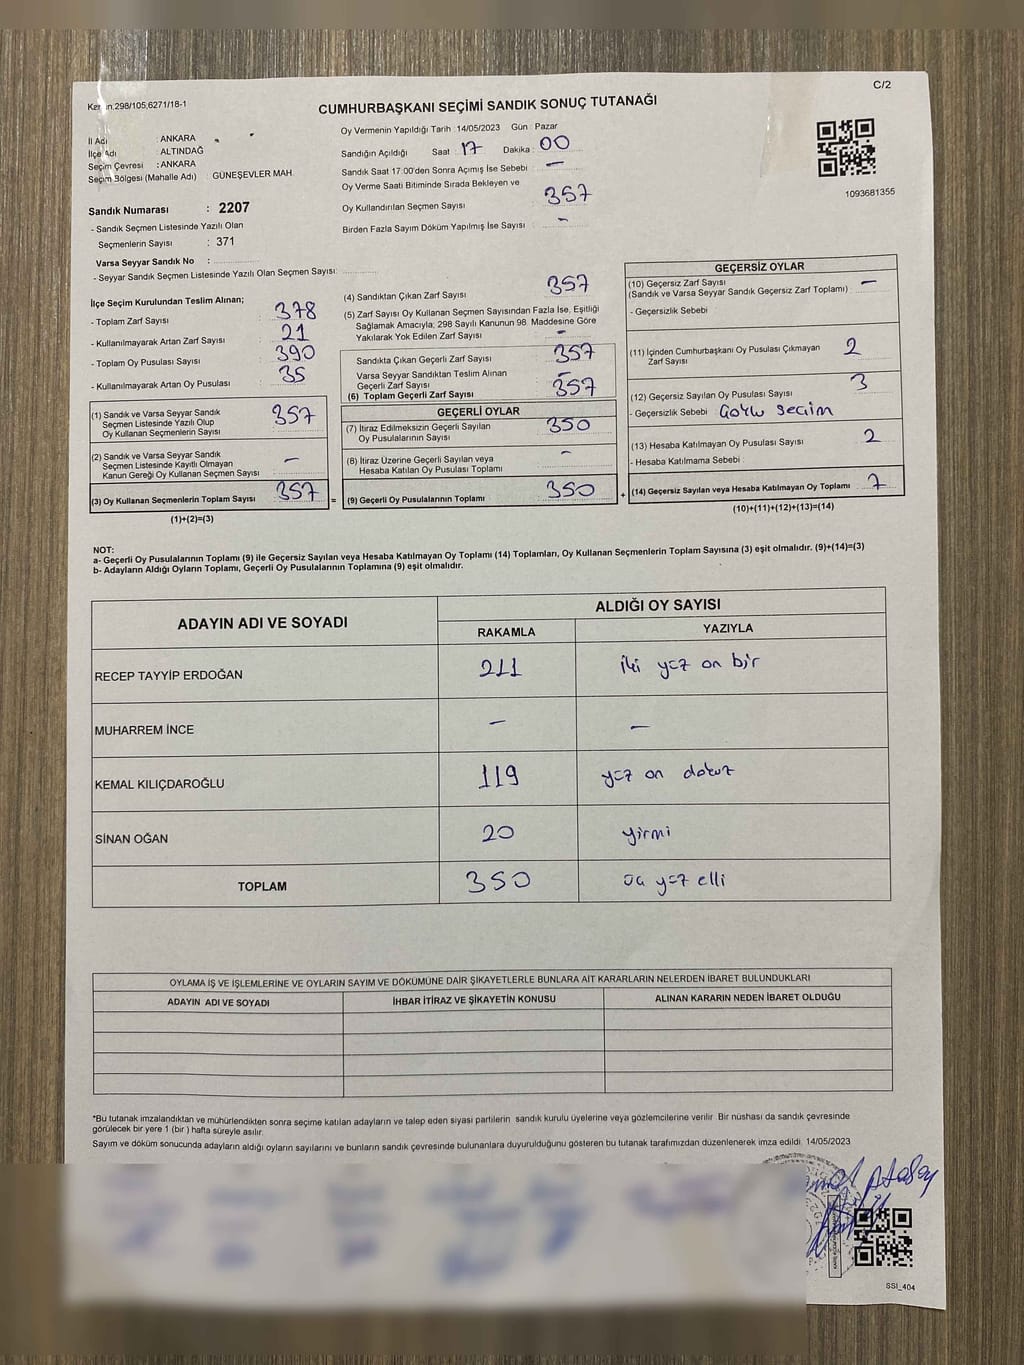 C/2
Kanun:298/105,6271/18-1
CUMHURBAŞKANI SEÇİMİ SANDIK SONUÇ TUTANAĞI
İl Adı : ANKARA
İlçe Adı : ALTINDAĞ
Seçim Çevresi : ANKARA
Seçim Bölgesi (Mahalle Adı) : GÜNEŞEVLER MAH.
Sandık Numarası : 2207
- Sandık Seçmen Listesinde Yazılı Olan
Seçmenlerin Sayısı : 371
Varsa Seyyar Sandık No :
- Seyyar Sandık Seçmen Listesinde Yazılı Olan Seçmen Sayısı:
Oy Vermenin Yapıldığı Tarih 14/05/2023 Gün Pazar
Sandığın Açıldığı Saat 17 Dakika 00
Sandık Saat 17:00'den Sonra Açımış İse Sebebi : —
Oy Verme Saati Bitiminde Sırada Bekleyen ve
Oy Kullandırılan Seçmen Sayısı : 357
Birden Fazla Sayım Döküm Yapılmış İse Sayısı : -
1093681355
İlçe Seçim Kurulundan Teslim Alınan;
- Toplam Zarf Sayısı : 378
- Kullanılmayarak Artan Zarf Sayısı : 21
- Toplam Oy Pusulası Sayısı : 390
- Kullanılmayarak Artan Oy Pusulası : 35
(1) Sandık ve Varsa Seyyar Sandık
Seçmen Listesinde Yazılı Olup
Oy Kullanan Seçmenlerin Sayısı : 357
(2) Sandık ve Varsa Seyyar Sandık
Seçmen Listesinde Kayıtlı Olmayan
Kanun Gereği Oy Kullanan Seçmen Sayısı : —
(3) Oy Kullanan Seçmenlerin Toplam Sayısı : 357 =
(1)+(2)=(3)
(4) Sandıktan Çıkan Zarf Sayısı : 357
(5) Zarf Sayısı Oy Kullanan Seçmen Sayısından Fazla İse, Eşitliği
Sağlamak Amacıyla; 298 Sayılı Kanunun 98. Maddesine Göre
Yakılarak Yok Edilen Zarf Sayısı : -
Sandıkta Çıkan Geçerli Zarf Sayısı : 357
Varsa Seyyar Sandıktan Teslim Alınan
Geçerli Zarf Sayısı : -
(6) Toplam Geçerli Zarf Sayısı : 357
GEÇERLİ OYLAR
(7) İtiraz Edilmeksizin Geçerli Sayılan
Oy Pusulalarının Sayısı : 350
(8) İtiraz Üzerine Geçerli Sayılan veya
Hesaba Katılan Oy Pusulası Toplamı : -
(9) Geçerli Oy Pusulalarının Toplamı : 350 +
GEÇERSİZ OYLAR
(10) Geçersiz Zarf Sayısı
(Sandık ve Varsa Seyyar Sandık Geçersiz Zarf Toplamı) : —
- Geçersizlik Sebebi
(11) İçinden Cumhurbaşkanı Oy Pusulası Çıkmayan
Zarf Sayısı : 2
(12) Geçersiz Sayılan Oy Pusulası Sayısı : 3
- Geçersizlik Sebebi : Çoklu seçim
(13) Hesaba Katılmayan Oy Pusulası Sayısı : 2
- Hesaba Katılmama Sebebi :
(14) Geçersiz Sayılan veya Hesaba Katılmayan Oy Toplamı : 7
(10)+(11)+(12)+(13)=(14)
NOT:
a- Geçerli Oy Pusulalarının Toplamı (9) ile Geçersiz Sayılan veya Hesaba Katılmayan Oy Toplamı (14) Toplamları, Oy Kullanan Seçmenlerin Toplam Sayısına (3) eşit olmalıdır. (9)+(14)=(3)
b- Adayların Aldığı Oyların Toplamı, Geçerli Oy Pusulalarının Toplamına (9) eşit olmalıdır.
ADAYIN ADI VE SOYADI ALDIĞI OY SAYISI
RAKAMLA YAZIYLA
RECEP TAYYİP ERDOĞAN 211 iki yüz on bir
MUHARREM İNCE — —
KEMAL KILIÇDAROĞLU 119 yüz on dokuz
SİNAN OĞAN 20 yirmi
TOPLAM 350 üç yüz elli
OYLAMA İŞ VE İŞLEMLERİNE VE OYLARIN SAYIM VE DÖKÜMÜNE DAİR ŞİKAYETLERLE BUNLARA AİT KARARLARIN NELERDEN İBARET BULUNDUKLARI
ADAYIN ADI VE SOYADI İHBAR İTİRAZ VE ŞİKAYETİN KONUSU ALINAN KARARIN NEDEN İBARET OLDUĞU
*Bu tutanak imzalandıktan ve mühürlendikten sonra seçime katılan adayların ve talep eden siyasi partilerin sandık kurulu üyelerine veya gözlemcilerine verilir. Bir nüshası da sandık çevresinde
görülecek bir yere 1 (bir) hafta süreyle asılır.
Sayım ve döküm sonucunda adayların aldığı oyların sayılarını ve bunların sandık çevresinde bulunanlara duyurulduğunu gösteren bu tutanak tarafımızdan düzenlenerek imza edildi. 14/05/2023
SSI_404